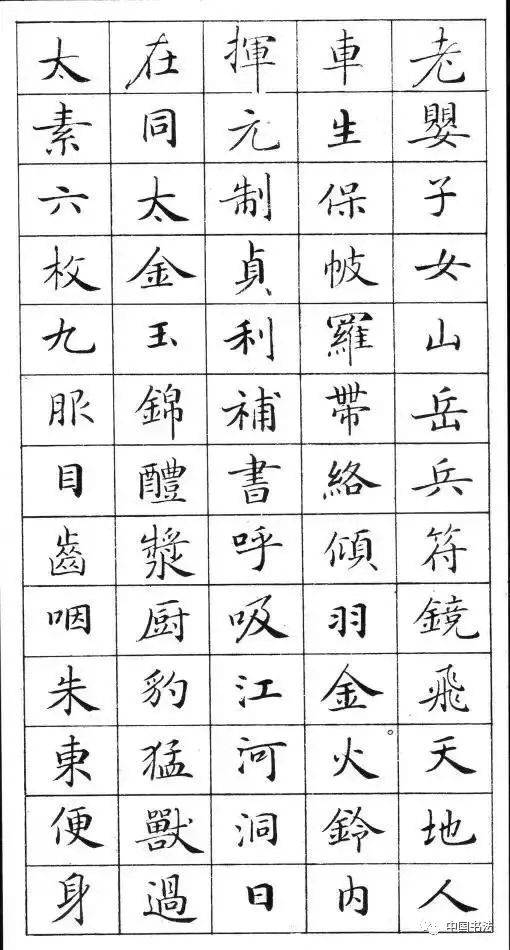 老嬰子女山岳兵符鏡飛天地人
車生保帔羅帶絡傾羽金火鈴内
揮元制貞利補書呼吸江河洞日
在同太金玉錦醴漿厨豹猛獸過
太素六枚九服目齒咽朱東便身
中国书法